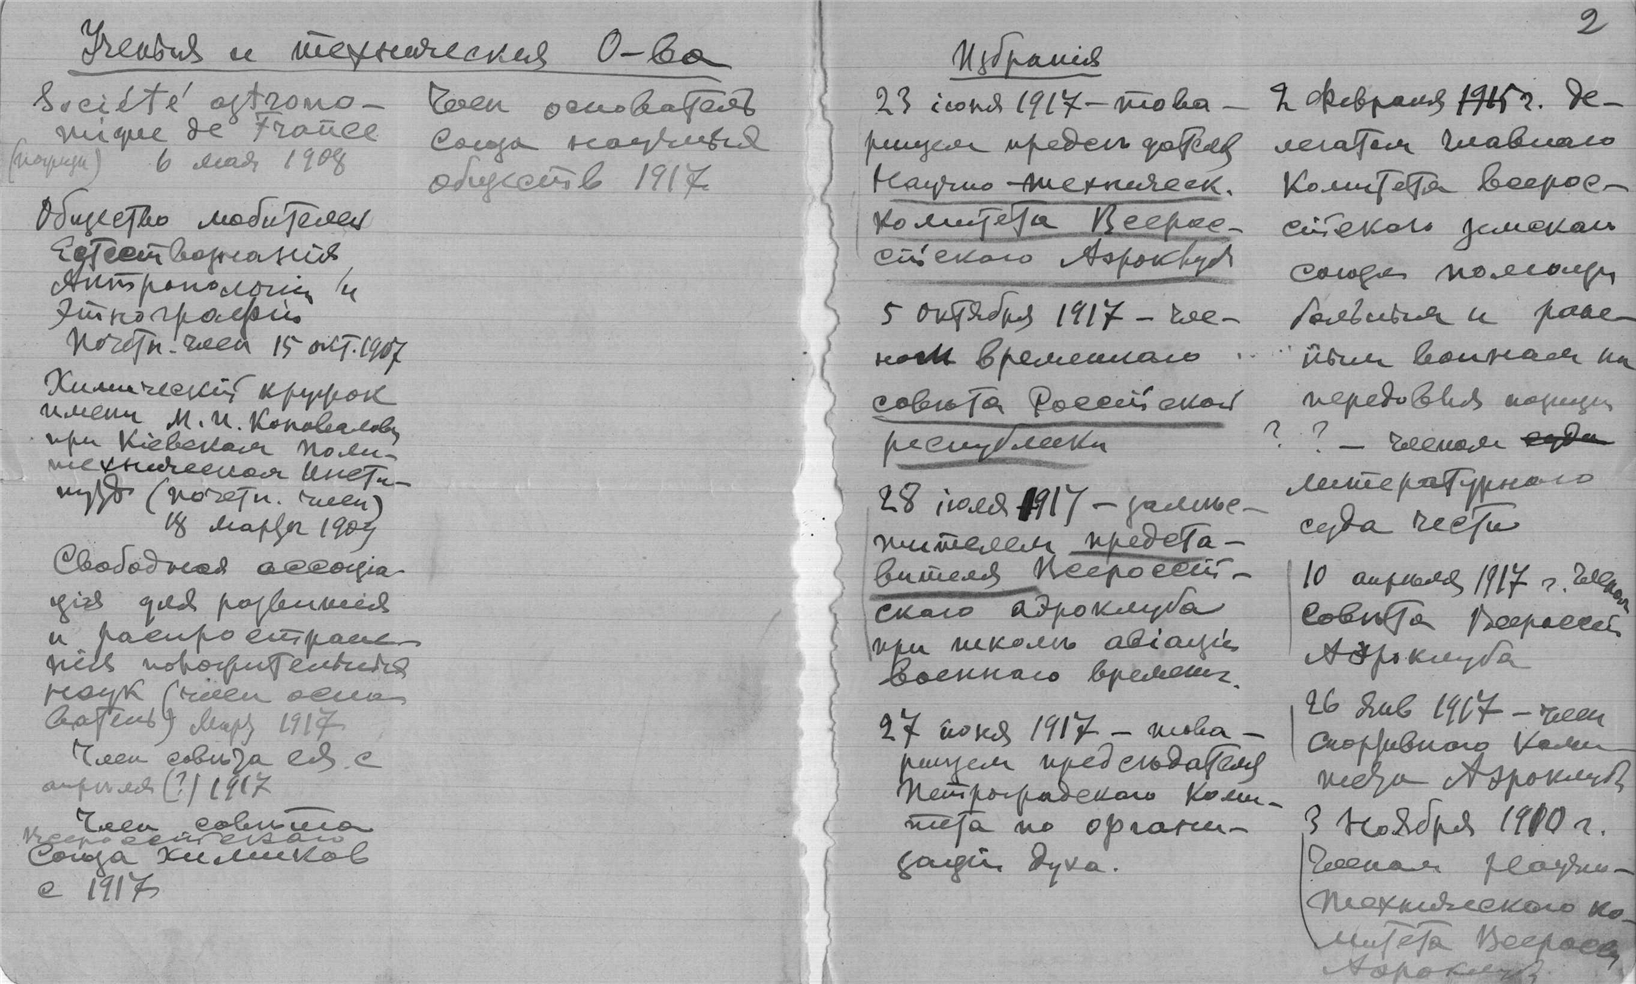 Ученыя и техническия О-ва
Société astrono-
mique de France
6 мая 1908
Общество любителей
Естествознанія
Антропологіи и
Этнографіи
Почетн. член 15 окт. 1907
Химическій кружок
имени М. И. Коновалова
при Кіевском Поли-
техническом Инсти-
туте (почетн. член)
18 марта 1909
Свободная ассоціа-
ція для развитія
и распростране-
нія положительных
наук (член осно-
ватель) Март 1917
Член совета ея с
апреля (?) 1917
Член совета
Всероссійскаго
Союза химиков
с 1917
Член основатель
союза научных
обществ 1917
2
Избранія
23 іюня 1917 – това-
рищем председателя
Научно-техническ.
комитета Всерос-
сійскаго Аэроклуба
5 октября 1917 – чле-
ном временнаго
совета Россійской
республики
28 іюля 1917 – замес-
тителем предста-
вителя Всероссій-
скаго аэроклуба
при школе авіаціи
военнаго времени.
27 іюня 1917 – това-
рищем председателя
Петроградскаго Коми-
тета по органи-
заціи духа.
2 февраля 1915 г. де-
легатом главнаго
Комитета всерос-
сійскаго земскаго
союза помощи
больным и ране-
ным воинам на
передовыя позиціи
? ? – членом суда
литературнаго
суда чести
10 апреля 1917 г. членом
совета Всероссій
Аэроклуба
26 янв 1917 – член
Спортивнаго Коми-
тета Аэроклуба
3 Ноября 1910 г.
Членом Научно-
Техническаго ко-
митета Всеросс
Аэроклуба